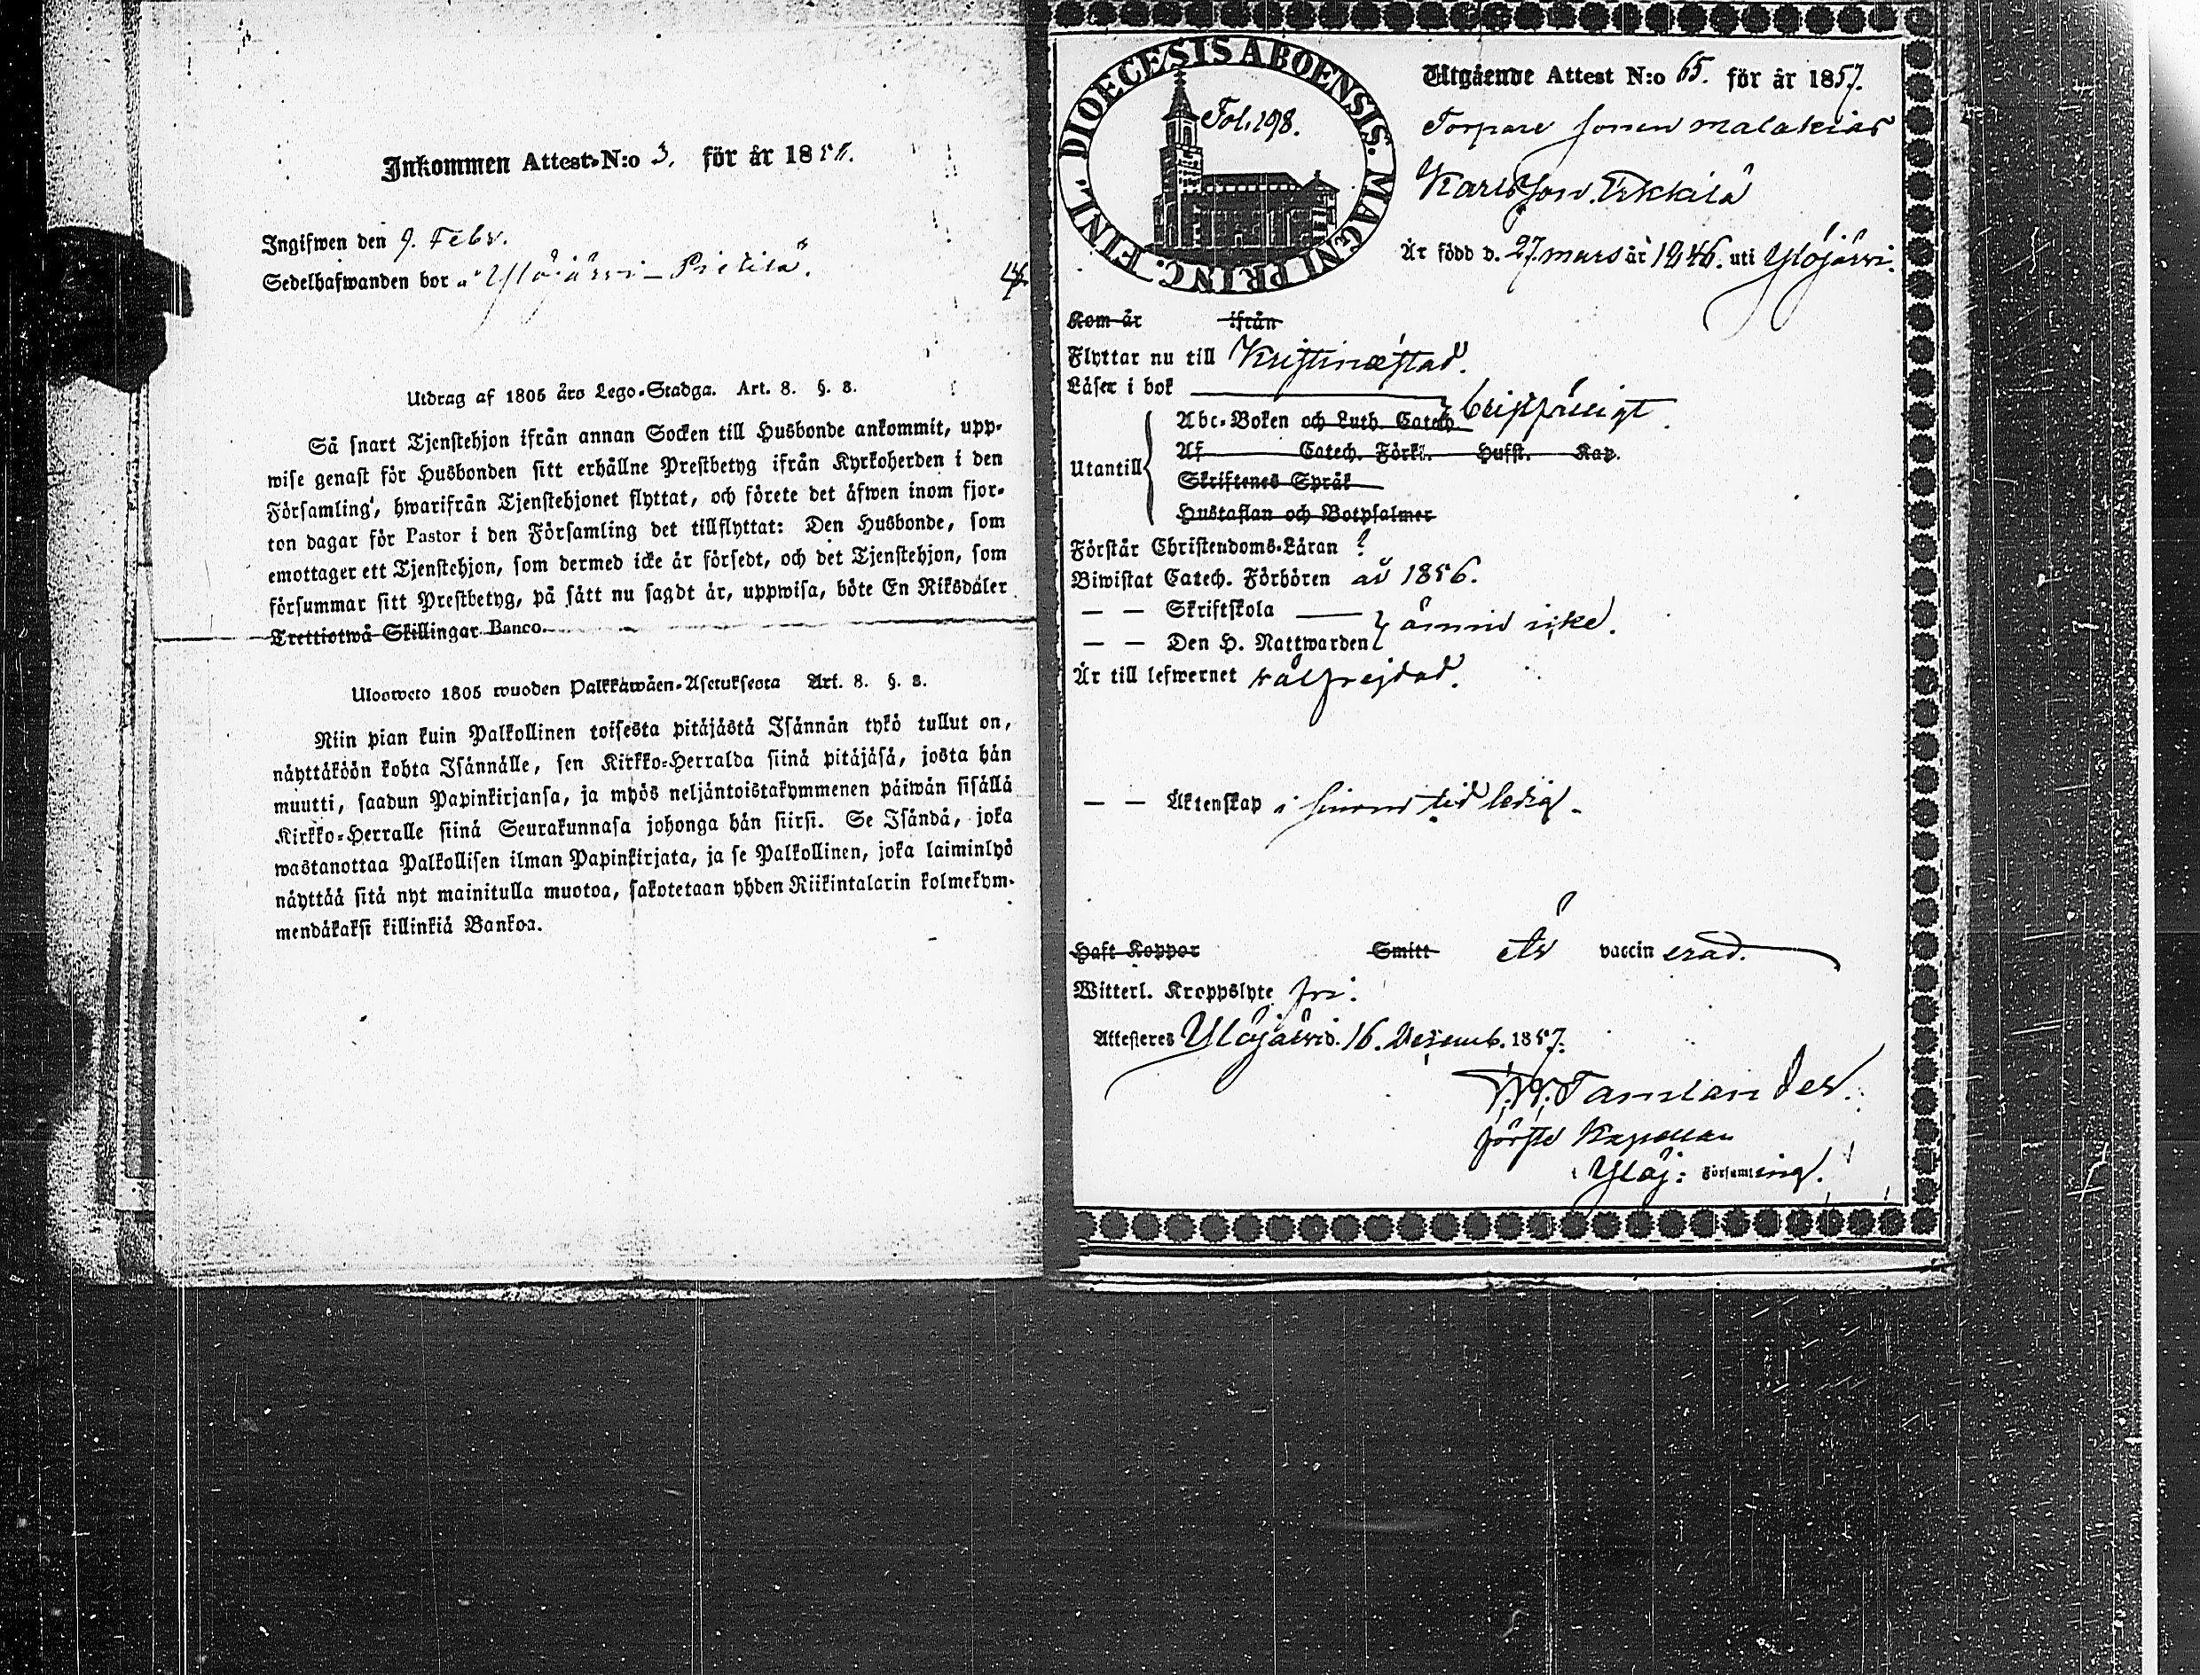 Inkommen Attest N:o 3. för år 185
Ingifwen den 9. Febr.
Sedelhafwanden bor Ylöjärvi – Pietilä.
Utdrag af 1805 års Lego-Stadga. Art. 8. §. 8.
Så snart Tjenstehjon ifrån annan Socken till Husbonde ankommit, upp-
wise genast för Husbonden sitt erhållne Prestbetyg ifrån Kyrkoherden i den
Församling, hwarifrån Tjenstehjonet flyttat, och förete det äfwen inom fjor-
ton dagar för Pastor i den Församling det tillflyttat: Den Husbonde, som
emottager ett Tjenstehjon, som dermed icke är försedt, och det Tjenstehjon, som
försummar sitt Prestbetyg, på sätt nu sagdt är, uppwisa, böte En Riksdaler
Trettiotwå Skillingar Banco.
Ulosweto 1805 wuoden Palkkawäen-Asetuksesta Art. 8. §. 8.
Niin pian kuin Palkollinen toisesta pitäjästä Isännän tykö tullut on,
näyttäköön kohta Isännälle, sen Kirkko-Herralda siinä pitäjäsä, josta hän
muutti, saadun Papinkirjansa, ja myös neljäntoistakymmenen päiwän sisällä
Kirkko-Herralle siinä Seurakunnasa johonga hän siirsi. Se Isändä, joka
wastanottaa Palkollisen ilman Papinkirjata, ja se Palkollinen, joka laiminlyö
näyttää sitä nyt mainitulla muotoa, sakotetaan yhden Riikintalarin kolmekym-
mendäkaksi killinkiä Bankoa.
DIOECESIS ABOENSIS. MAGNI PRINC. FINL.
Fol. 198.
Utgående Attest N:o 65. för år 1857.
Torpare sonen Malakias
Karlsson Erkkilä
Är född d. 27 mars år 1846. uti Ylöjärvi.
Kom år ifrån
Flyttar nu till Kristinæstad.
Läser i bok
Utantill
Abc-Boken och Luth. Catech.
Af Catech. Förkl. Hufst. Kap.
Skriftenes Språk
Hustaflan och Botpsalmer
Förstår Christendoms-Läran
Biwistat Catech. Förhören år 1856.
— — Skriftskola
— — Den H. Nattwarden
ännu icke.
Är till lefwernet wälfrejdad.
— — Äktenskap i sinom tid ledig.
Haft Koppor Smitt är vaccinerad.
Witterl. Kroppslyte fri.
Attesteres Ylöjärvi d. 16. Desemb. 1857.
Tamlander.
förste Kapellan
i Ylöj: Församling.